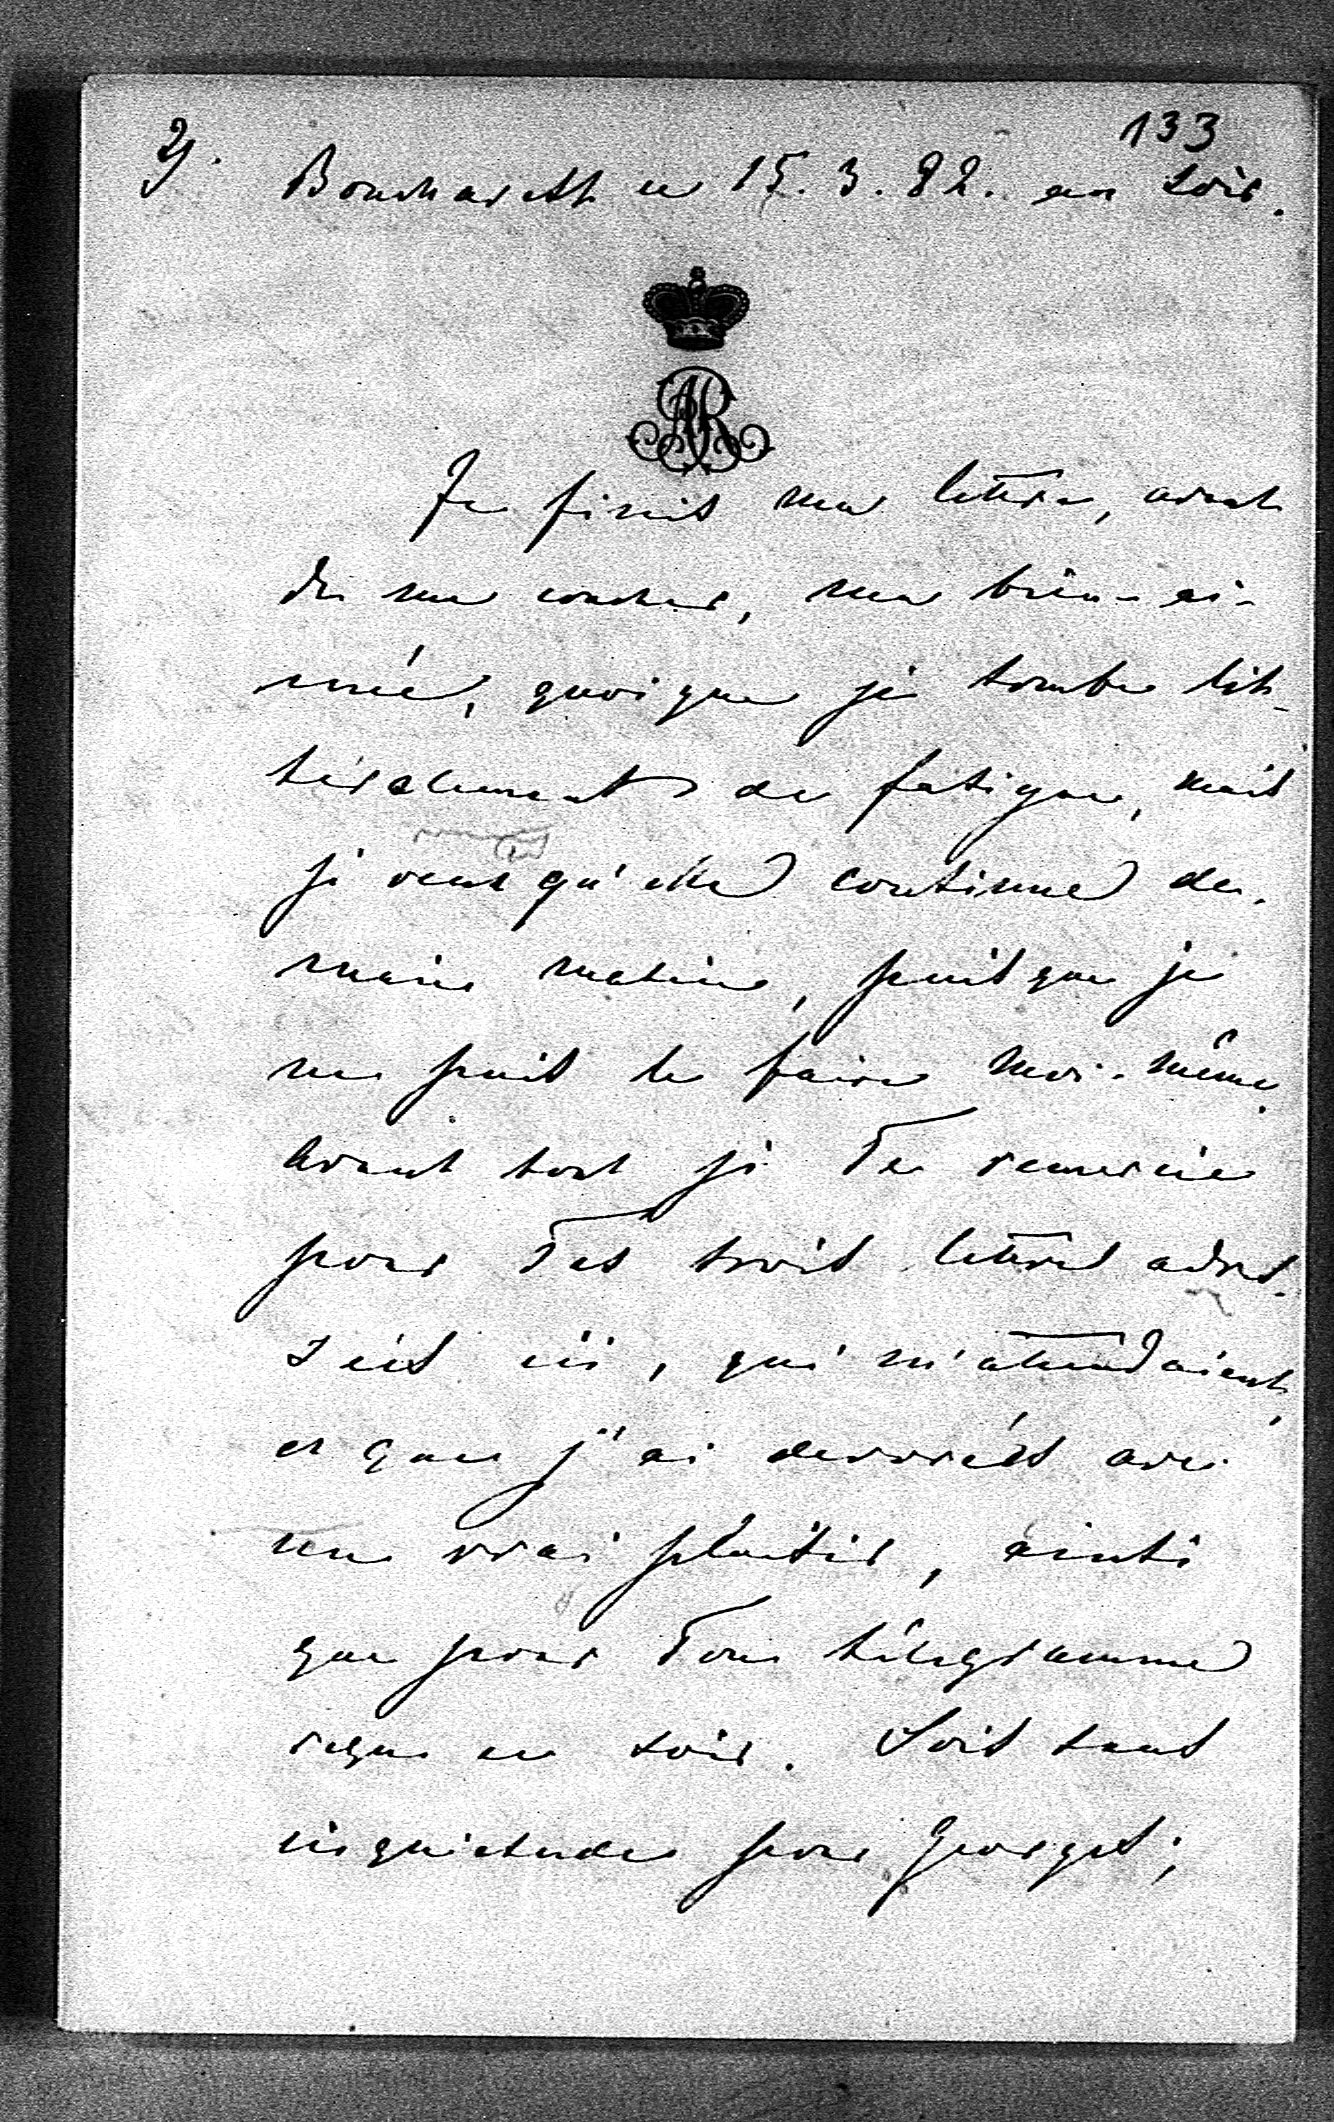 133
2).
Boucharest ce 15. 3. 82. au soir.
AR
Je finis ma lettre, avant
de me coucher, ma bien-ai-
mée, quoique je tombe lit-
téralement de fatigue, mais
je veux qu'elle continue de-
main matin, puisque je
ne puis le faire moi-même.
Avant tout je Te remercie
pour Tes trois lettres adres-
sées ici, qui m'attendaient,
et que j'ai dévorées avec
un vrai plaisir, ainsi
que pour Ton télégramme
reçu ce soir. Sois sans
inquietude pour Georges;